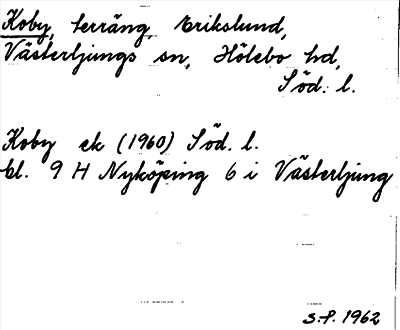 Koby, terräng, Erikslund,
Västerljungs sn, Hölebo hd,
Söd. l.
Koby ek (1960) Söd. l.
bl. 9 H Nyköping 6 i Västerljung
S.P. 1962